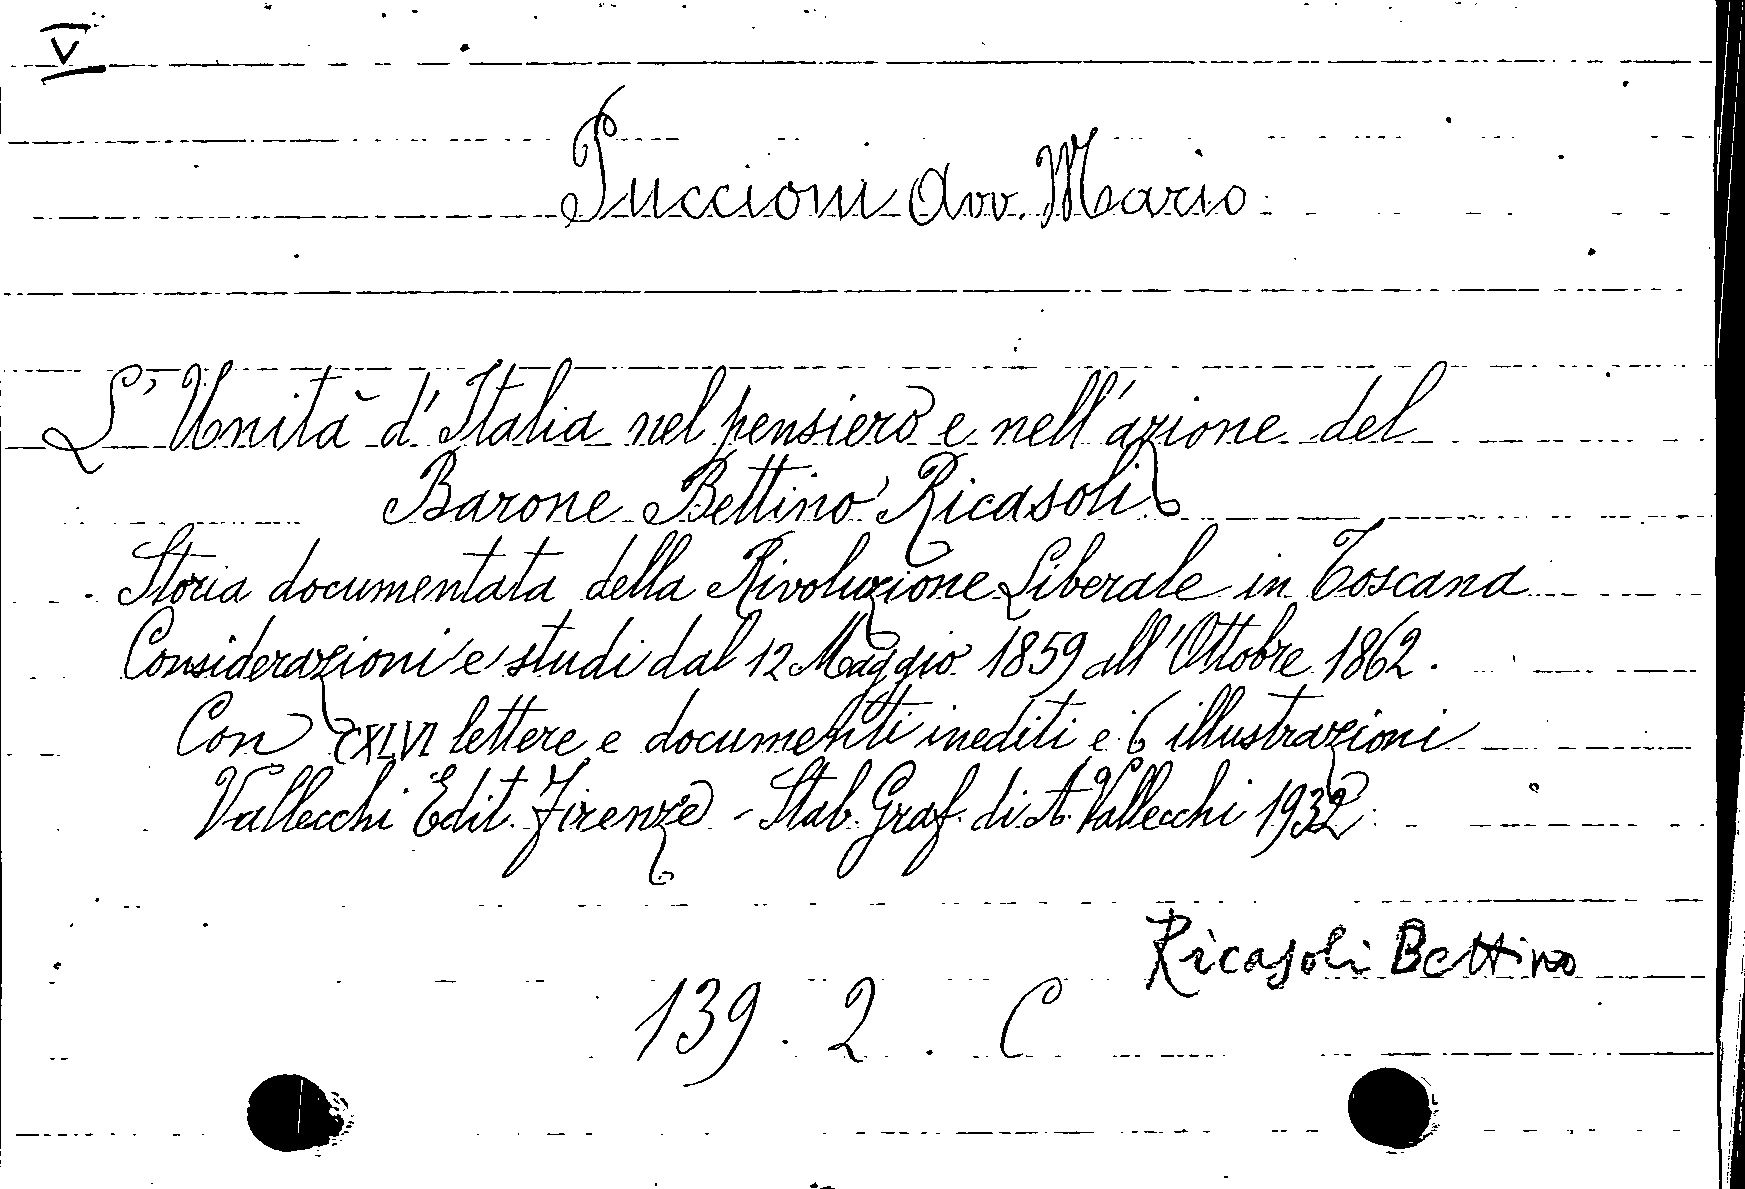 V
Puccioni Avv. Mario
L'Unità d'Italia nel pensiero e nell'azione del
Barone Bettino Ricasoli
Storia documentata della Rivoluzione Liberale in Toscana
Considerazioni e studi dal 12 Maggio 1859 all'Ottobre 1862.
Con CXLVI lettere e documenti inediti e 6 illustrazioni
Vallecchi Edit. Firenze - Stab. Graf. di A. Vallecchi 1932
Ricasoli Bettino
139. 2. C